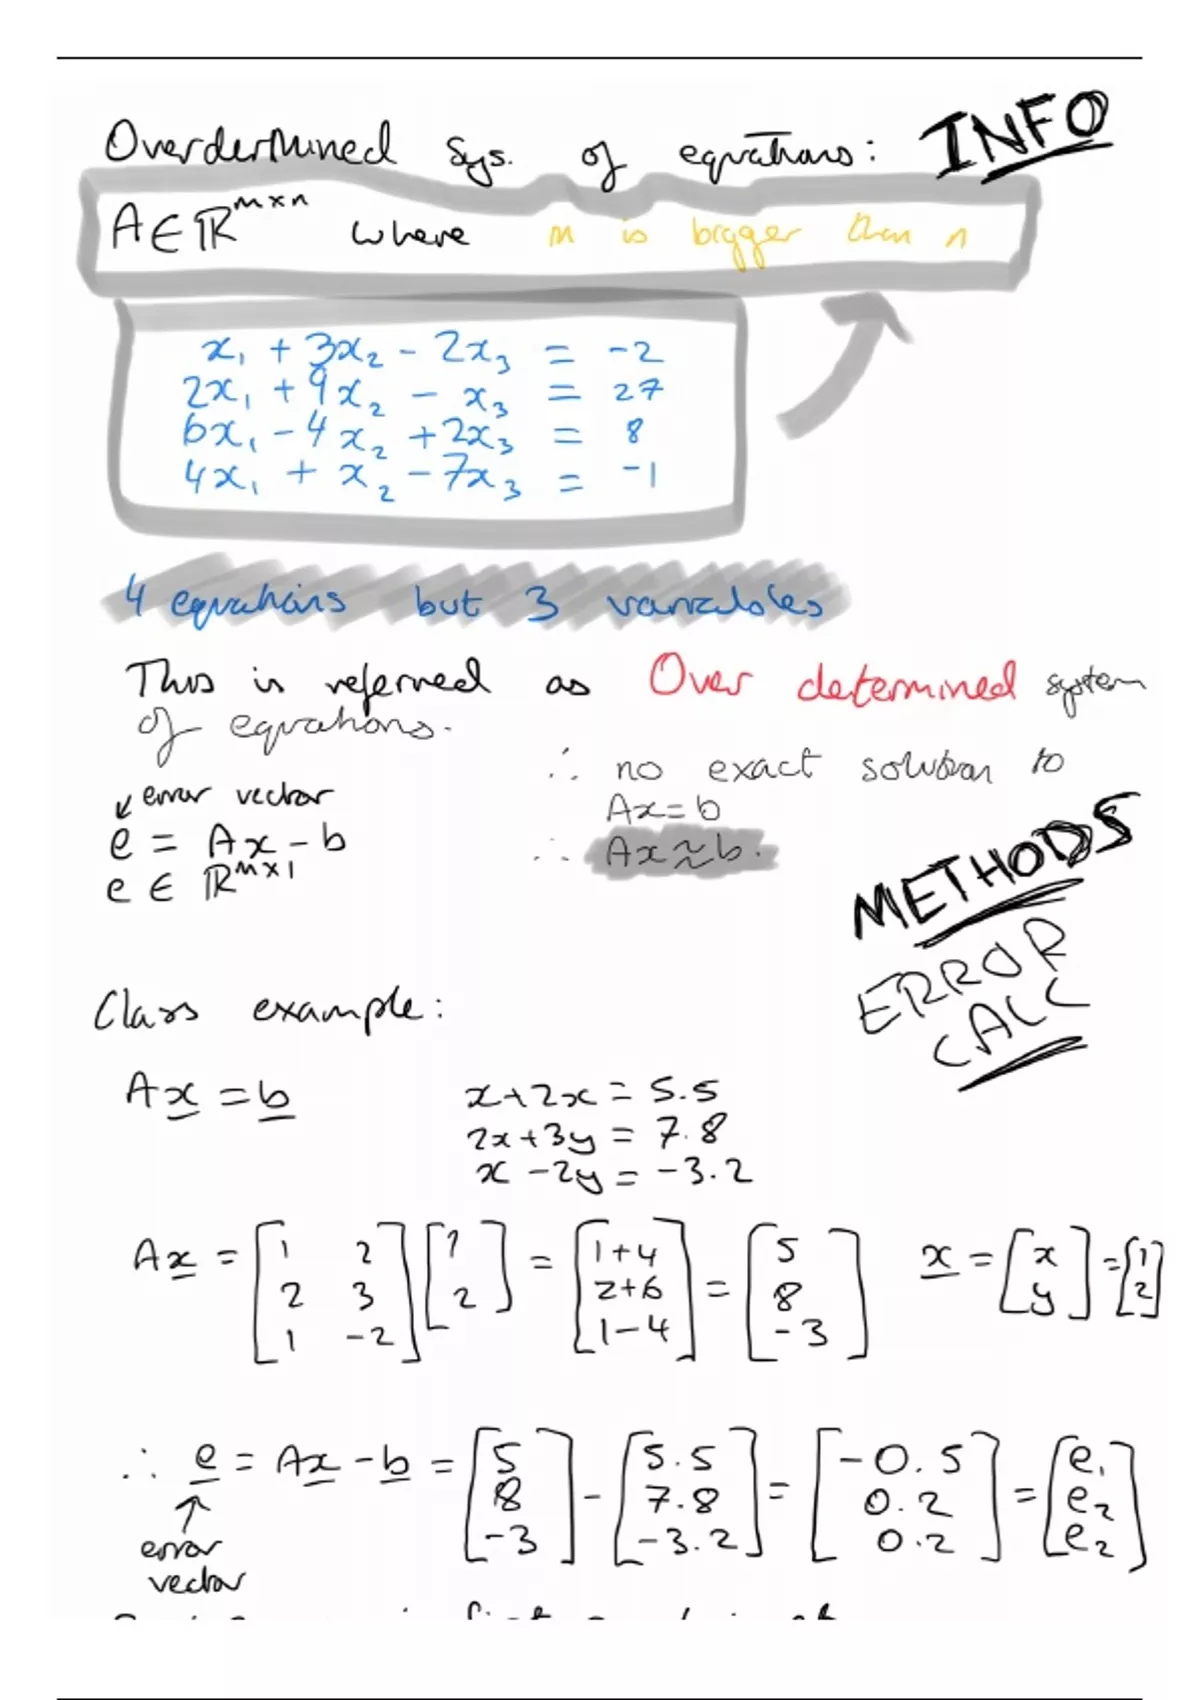 Overdermined sys. of equations: INFO
A ∈ ℝ^{m×n} where m is bigger than n
x₁ + 3x₂ - 2x₃ = -2
2x₁ + 9x₂ - x₃ = 27
6x₁ - 4x₂ + 2x₃ = 8
4x₁ + x₂ - 7x₃ = -1
4 equations but 3 variables
This is referred as Over determined system
of equations.
∴ no exact solution to
Ax=b
∴ Ax≈b.
↙ error vector
e = Ax - b
e ∈ ℝ^{m×1}
METHODS
ERROR
CALC
Class example:
Ax = b
x+2x = 5.5
2x+3y = 7.8
x -2y = -3.2
Ax = [1 2; 2 3; 1 -2] [1; 2] = [1+4; 2+6; 1-4] = [5; 8; -3] x = [x; y] = [1; 2]
∴ e = Ax - b = [5; 8; -3] - [5.5; 7.8; -3.2] = [-0.5; 0.2; 0.2] = [e₁; e₂; e₂]
↑
error
vector